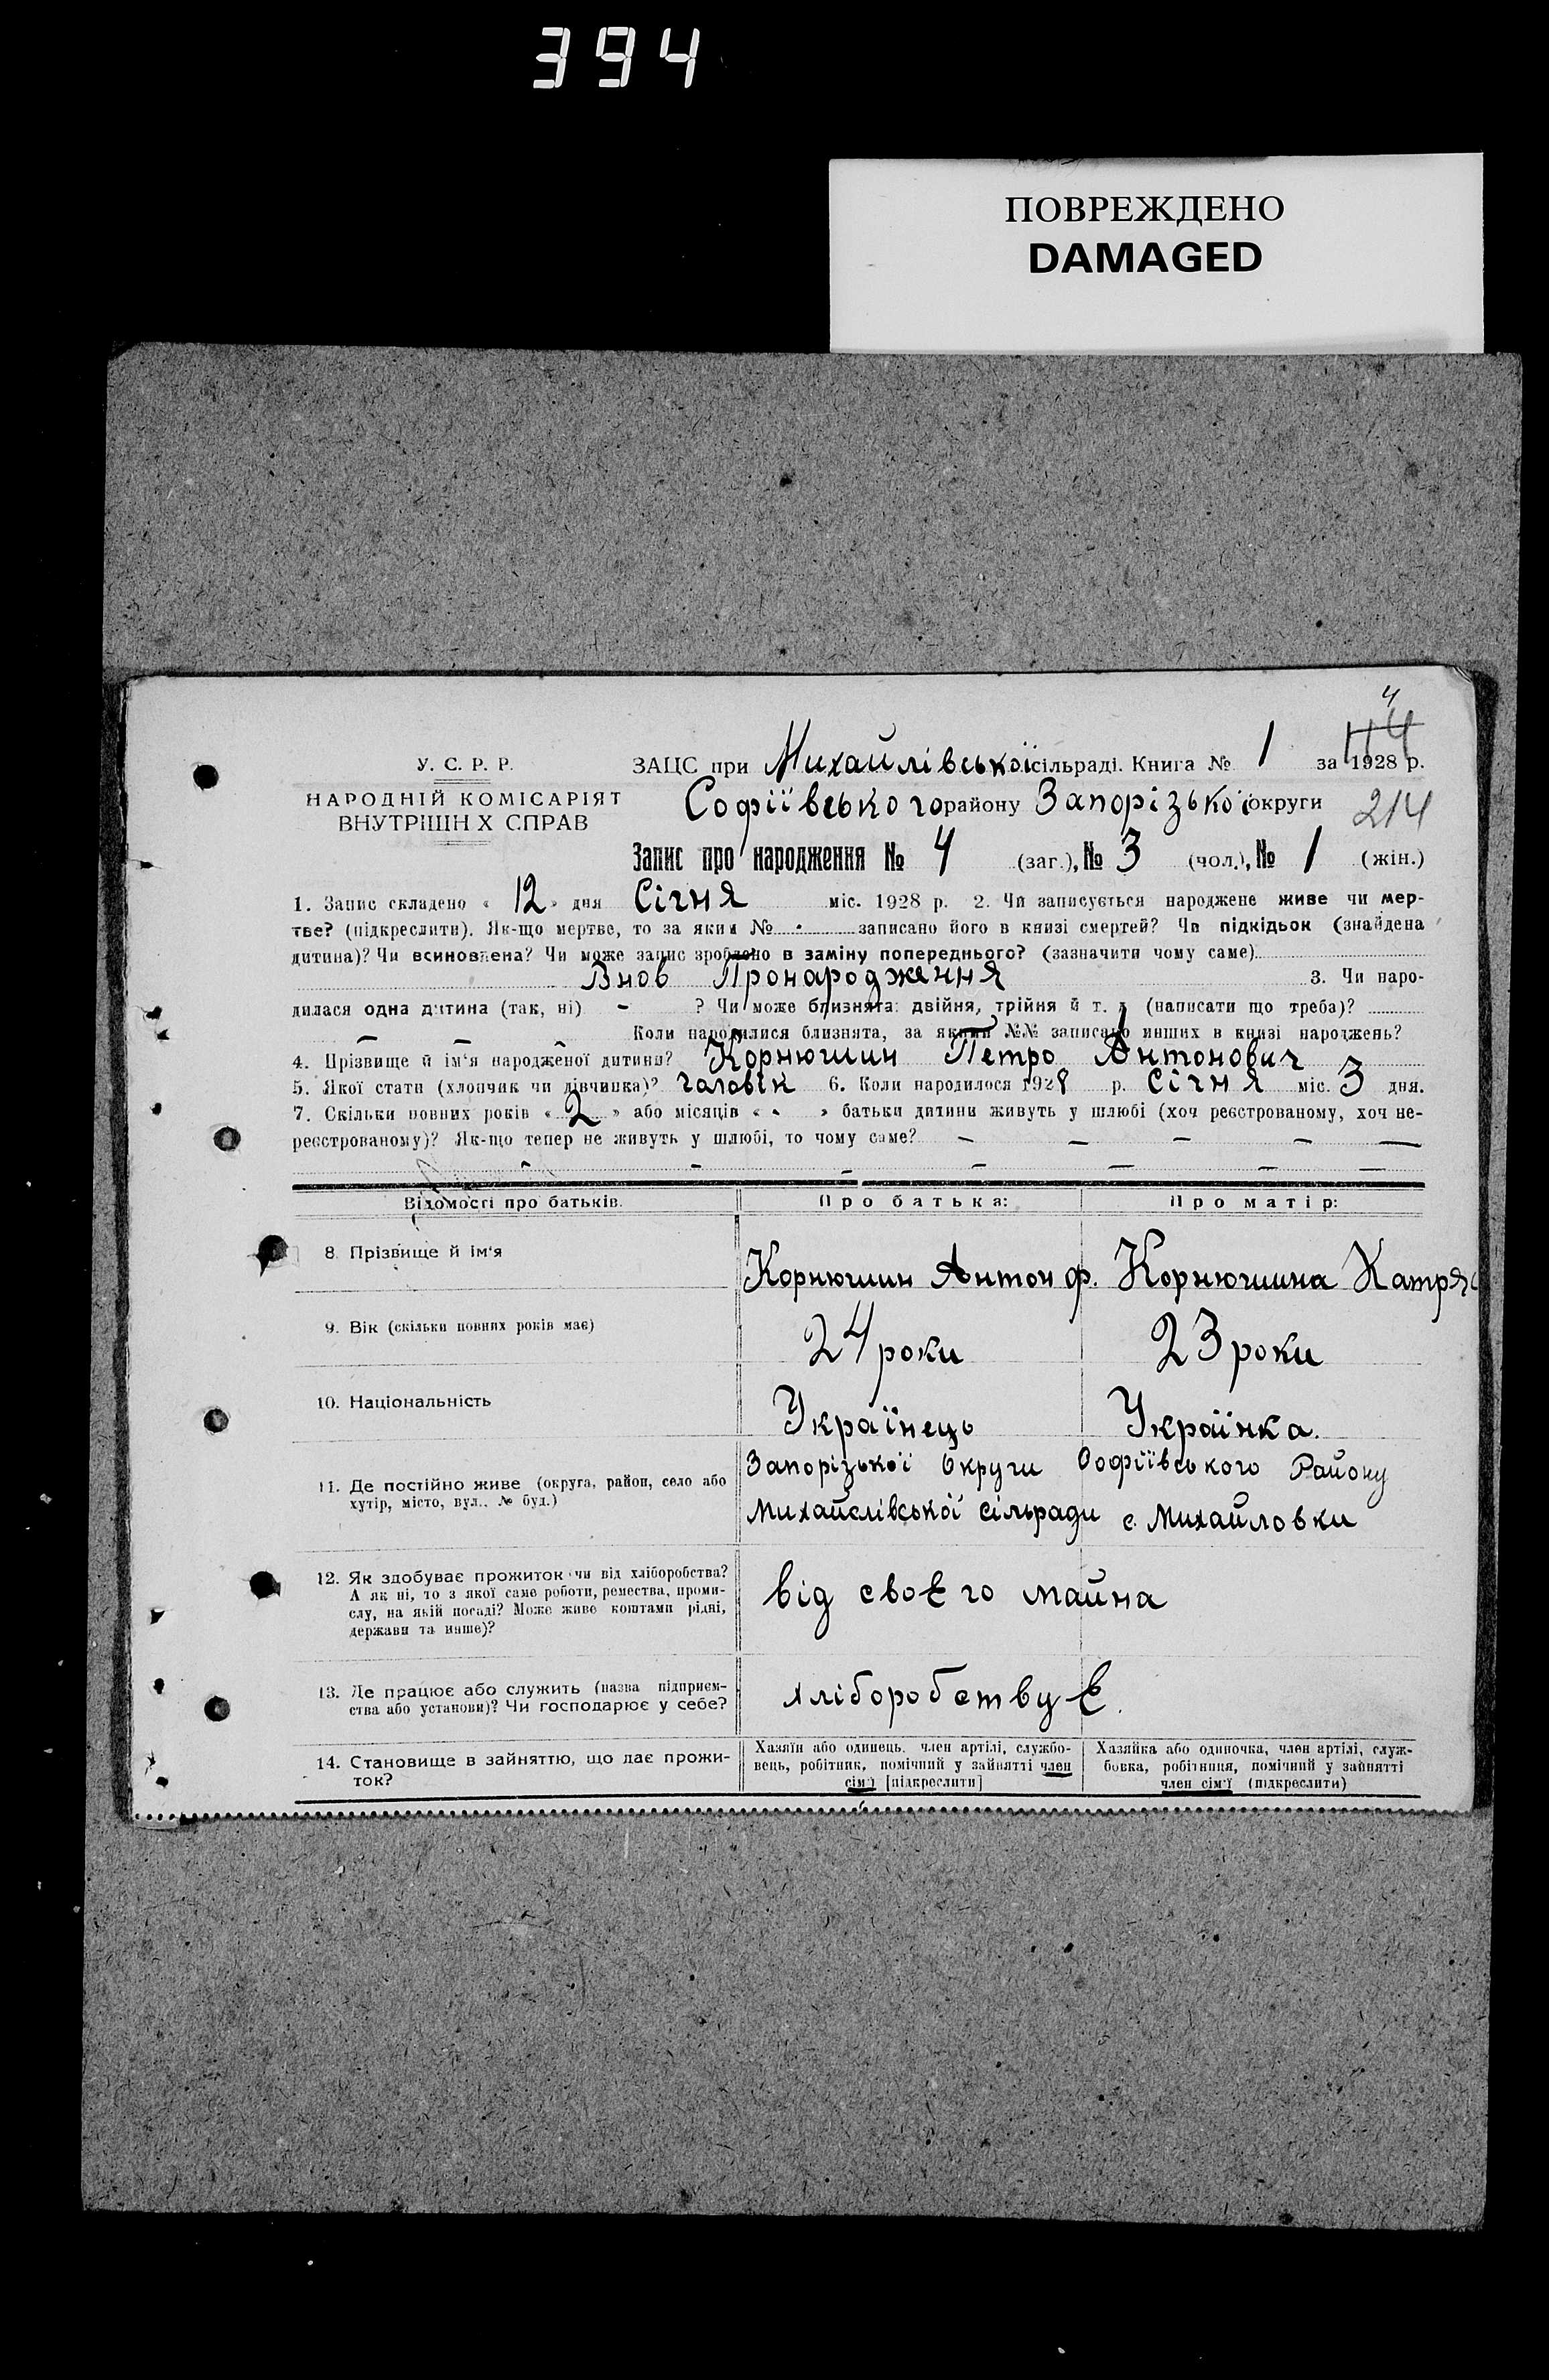 394
ПОВРЕЖДЕНО
DAMAGED
4
У. С. Р. Р.
НАРОДНІЙ КОМІСАРІЯТ
ВНУТРІШН Х СПРАВ
ЗАЦС при Михайлівської сільраді. Книга № 1 за 1928 р.
Софіївського району Запорізької округи 214
Запис про народження № 4 (заг.), № 3 (чол.), № 1 (жін.)
1. Запис складено « 12 » дня Січня міс. 1928 р. 2. Чи записується народжене живе чи мер-
тве? (підкреслити). Як-що мертве, то за яким № - записано його в книзі смертей? Чи підкідьок (знайдена
дитина)? Чи всиновлена? Чи може запис зроблено в заміну попереднього? (зазначити чому саме)
Внов Пронародження 3. Чи наро-
дилася одна дитина (так, ні) - ? Чи може близнята: двійня, трійня й т. д. (написати що треба)?
Коли народилися близнята, за якими №№ записано инших в книзі народжень?
4. Прізвище й ім'я народженої дитини? Корнюшин Петро Антонович
5. Якої стати (хлопчик чи дівчинка)? Чоловік 6. Коли народилося 1928 р. Січня міс. 3 дня.
7. Скільки повних років « 2 » або місяців « - » батьки дитини живуть у шлюбі (хоч реєстрованому, хоч не-
реєстрованому)? Як-що тепер не живуть у шлюбі, то чому саме? - - - - -
- - - - - - -
Відомості про батьків. Про батька: Про матір:
8. Прізвище й ім'я Корнюшин Антон Ф. Корнюшина Катря
9. Вік (скільки повних років має) 24 роки 23 роки
10. Національність Українець Українка.
11. Де постійно живе (округа, район, село або
хутір, місто, вул., № буд.)
Запорізької Округи Софіївського Району
Михайлівської сільради с. Михайловки
12. Як здобуває прожиток чи від хліборобства?
А як ні, то з якої саме роботи, ремества, проми-
слу, на якій посаді? Може живе коштами рідні,
держави та инше)?
від своєго майна
13. Де працює або служить (назва підприєм-
ства або установи)? Чи господарює у себе?
хліборобствує.
14. Становище в зайняттю, що дає прожи-
ток?
Хазяїн або одинець, член артілі, службо-
вець, робітник, помічний у зайнятті член
сім'ї [підкреслити]
Хазяйка або одиночка, член артілі, служ-
бовка, робітниця, помічний у зайнятті
член сім'ї (підкреслити)